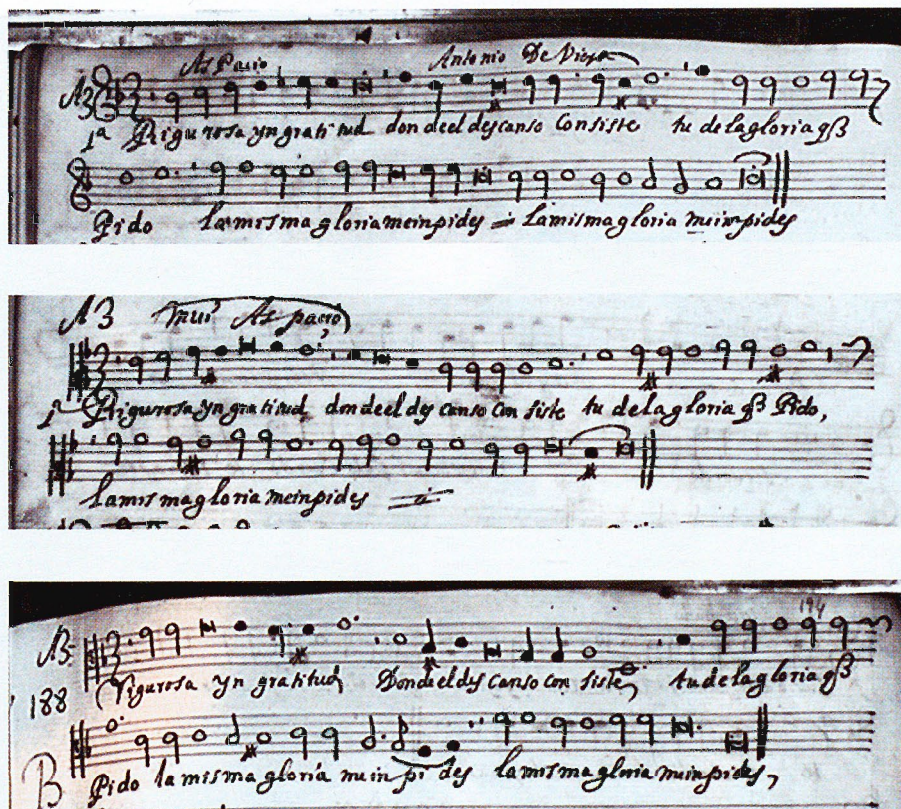 As Pacio Antonio De Viera
A3
1ª Rigurosa yngratitud dondeel descanso Consiste tu delagloria qß
Pido lamismagloriameinpides = lamismagloria meinpides
A3 mui As pacio
1ª Rigurosa yngratitud dondeel des canso Con siste tu delagloria qß Pido,
lamismagloria meinpides =
194
A3
Rigurosa yn gratitud, Dondeeldes canso con siste, tudelagloria qß
188
Pido la mismagloria meinpides lamismagloria meinpides,
B